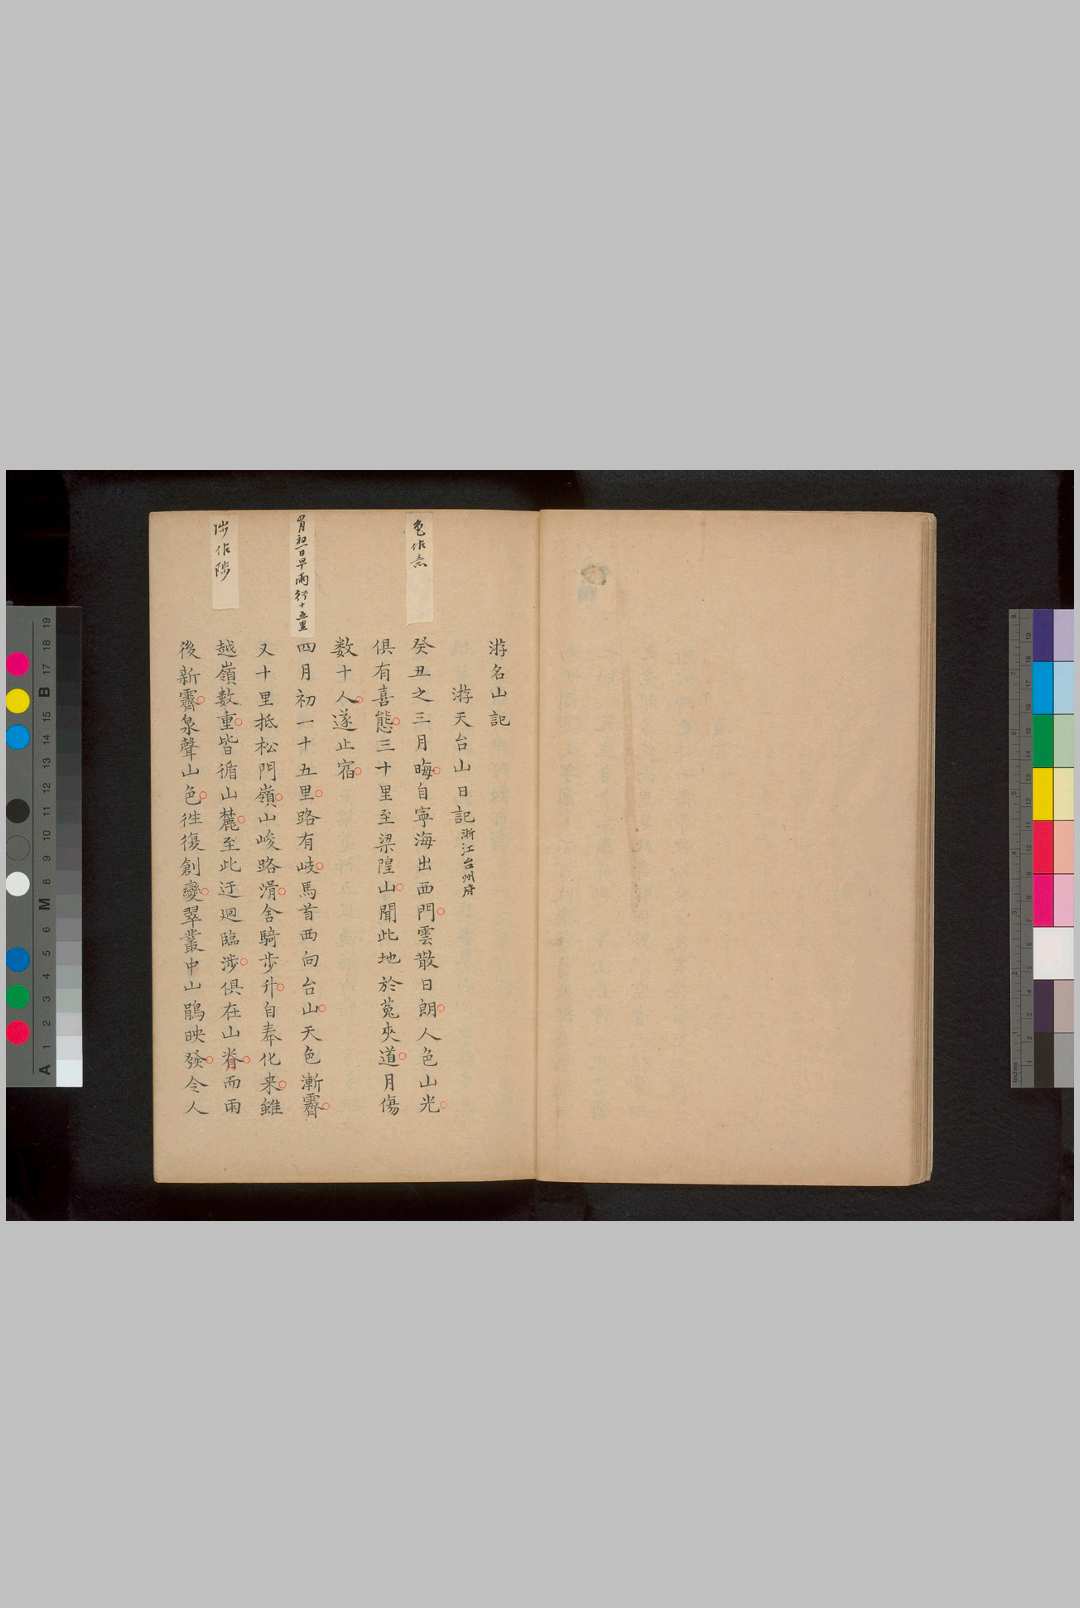 游名山記
游天台山日記 浙江台州府
癸丑之三月晦自寧海出西門雲散日朗人色山光
俱有喜態三十里至梁隍山聞此地於菟夾道月傷
数十人遂止宿
四月初一十五里路有岐馬首西向台山天色漸霽
又十里抵松門嶺山峻路滑舍騎步升自奉化来雖
越嶺數重皆循山麓至此迂迴臨涉俱在山脊而雨
後新霽泉聲山色徃復創變翠叢中山鵑映發令人
色作意
四月初一日早雨行十五里
涉作陟